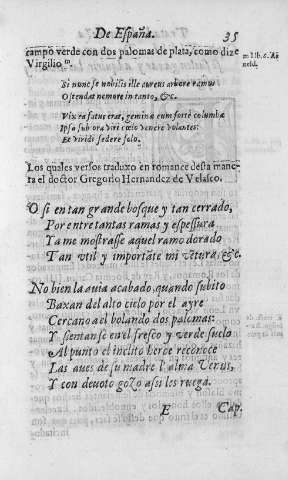 De España. 35
campo verde con dos palomas de plata, como dize
Virgilio m.
m lib. 6. Æ
neid.
Si nunc se nobilis ille aureus arbore ramus
Ostendat nemore in tanto, &c.
Vix ea fatus erat, geminæ cum forte columbæ
Ipsa sub ora viri cœlo venere volantes:
Et viridi sedere solo.
Los quales versos traduxo en romance desta mane
ra el doctor Gregorio Hernandez de Velasco.
O si en tan grande bosque y tan cerrado,
Por entre tantas ramas y espessura,
Ya me mostrasse aquel ramo dorado
Tan vtil y importãte mi vẽtura, &c.
No bien la auia acabado, quando subito
Baxan del alto cielo por el ayre
Cercano a el bolando dos palomas:
Y sientanse en el fresco y verde suelo
Al punto el inclito heroe reconoce
Las aues de su madre l'alma Venus,
Y con deuoto gozo assi les ruega.
E Cap.